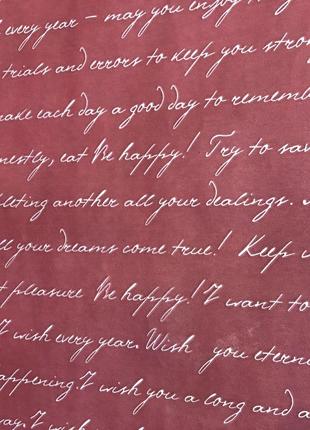 every year – may you enjoy
trials and errors to keep you stron
make each day a good day to rememb
nestly, eat Be happy! Try to sav
leting another all your dealings.
ll your dreams come true! Keep
t pleasure Be happy! I want to
I wish every year. Wish you etern
appening. I wish you a long and a
way. I wish